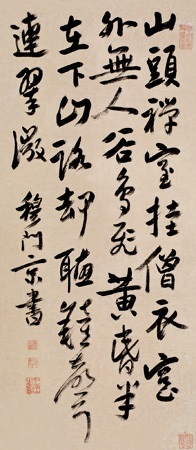 山頭禪室挂僧衣窓
外無人谷鳥飛黃昏半
在下山路却聽鐘聲
連翠微 穆門京書